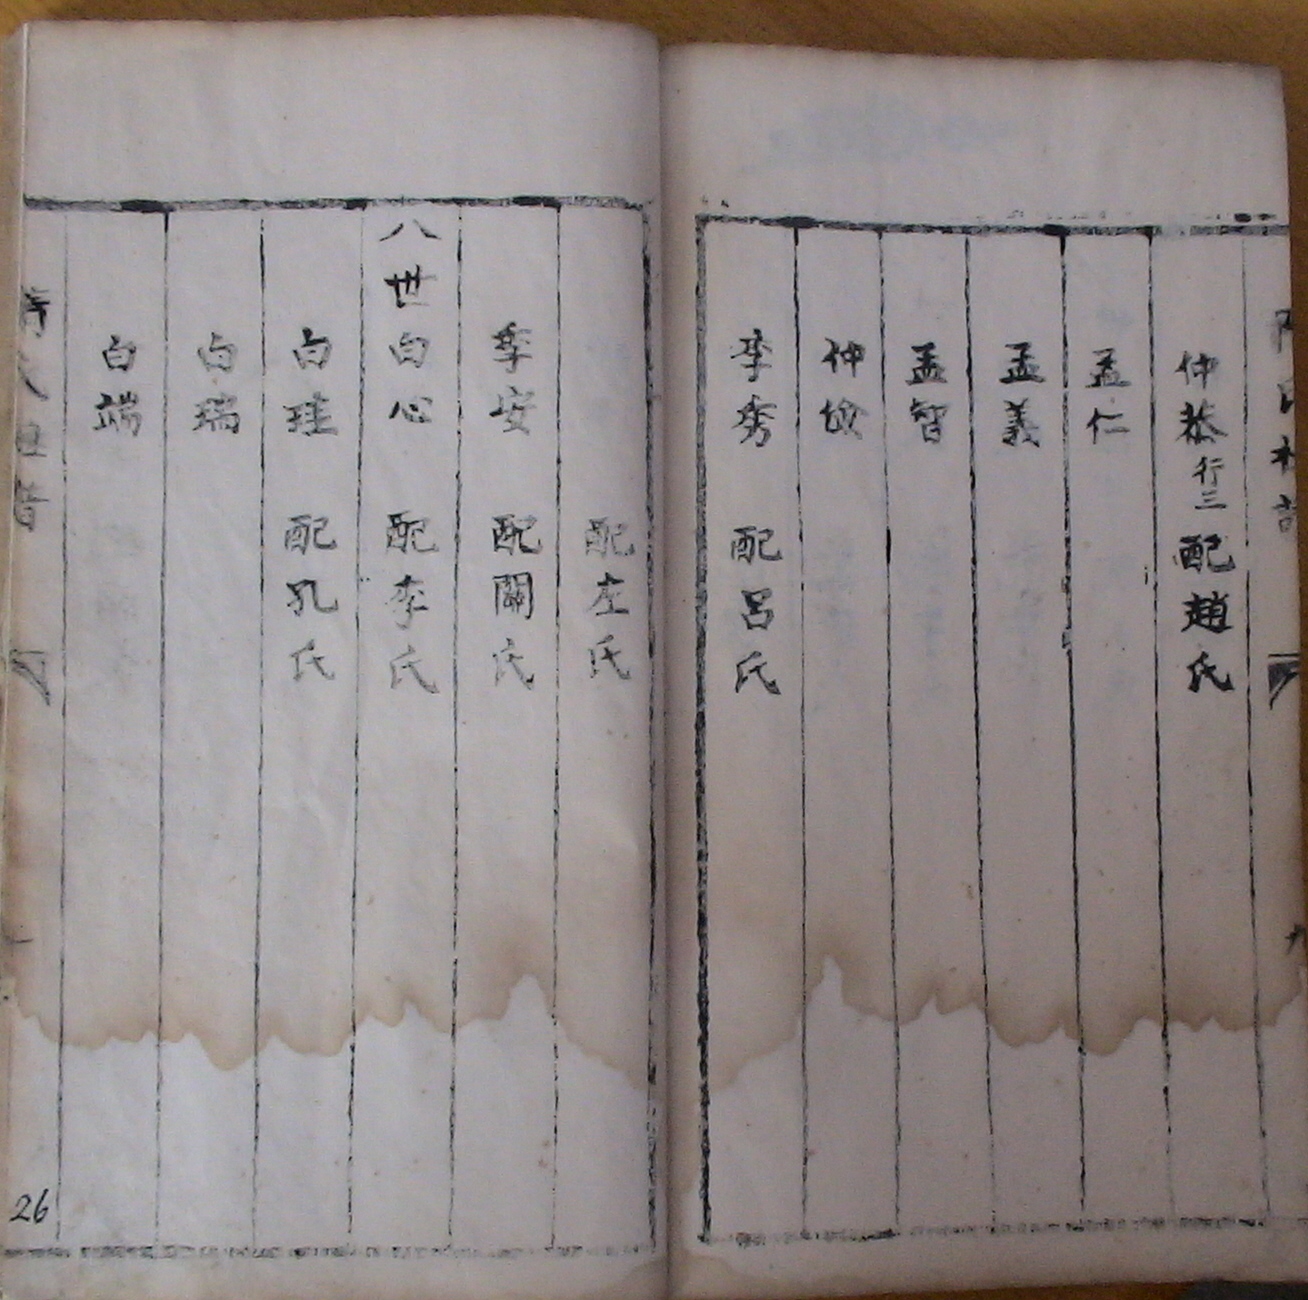 仲恭行三 配趙氏
孟仁
孟義
孟智
仲
季秀 配呂氏
配左氏
季安 配關氏
八世 白心 配李氏
白珪 配孔氏
白瑞
白端
26